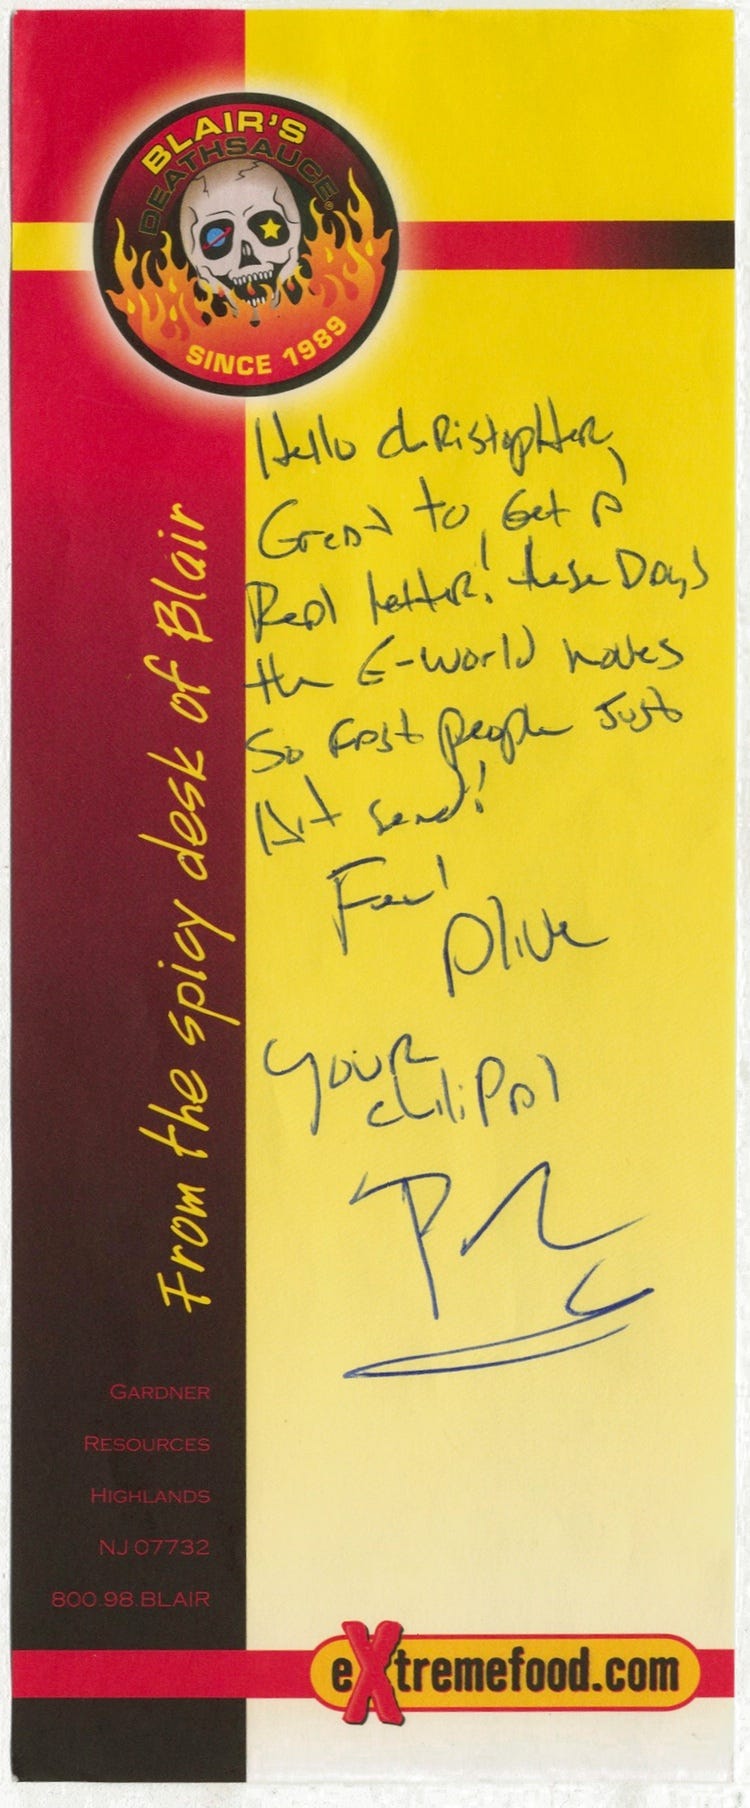 BLAIR'S
DEATHSAUCE®
SINCE 1989
Hello christopher,
Great to Get A
Real Letter! these Days
the E-world moves
So fast people Just
Hit send!
Feel
Alive
Your
chiliPal
From the spicy desk of Blair
GARDNER
RESOURCES
HIGHLANDS
NJ 07732
800.98.BLAIR
eXtremefood.com